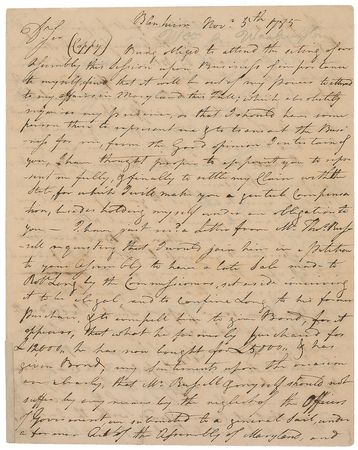 Dr Sir
Blenheim Novr 5th 1795
(Copy)
Being obliged to attend the setting of our
Assembly this Session upon Business of importance
to myself, that it will be out of my power to attend
to my affairs in Maryland this Fall, which absolutely
requires my presence, or that I should have some
person there to represent me & to transact the Busi
ness for me, from the Good opinion I entertain of
you, I have thought proper to appoint you to repre
sent me fully, & finally to settle my Claim with the
State, for which I will make you a genteel Compensa
tion, besides holding myself under an Obligation to
you — I have just recd a letter from Mr Thos Russ
ell requesting that I would join him in a Petition
to your Assembly to have a late Sale made to
Robt Long by the Commissioners, set aside conceiving
it to be illegal, and to confine Long to his former
Purchase & to compell him to give Bond, for it
appears, that what he formerly purchased for
£12000, he has now bought for £5,000, & has
given Bond, my sentiments upon the occasion
are clearly, that Mr Russell & myself should not
suffer by any means by the neglect of the Officers
of Government, as intrusted to a general Sale, under
a former Act of the Assembly of Maryland, and